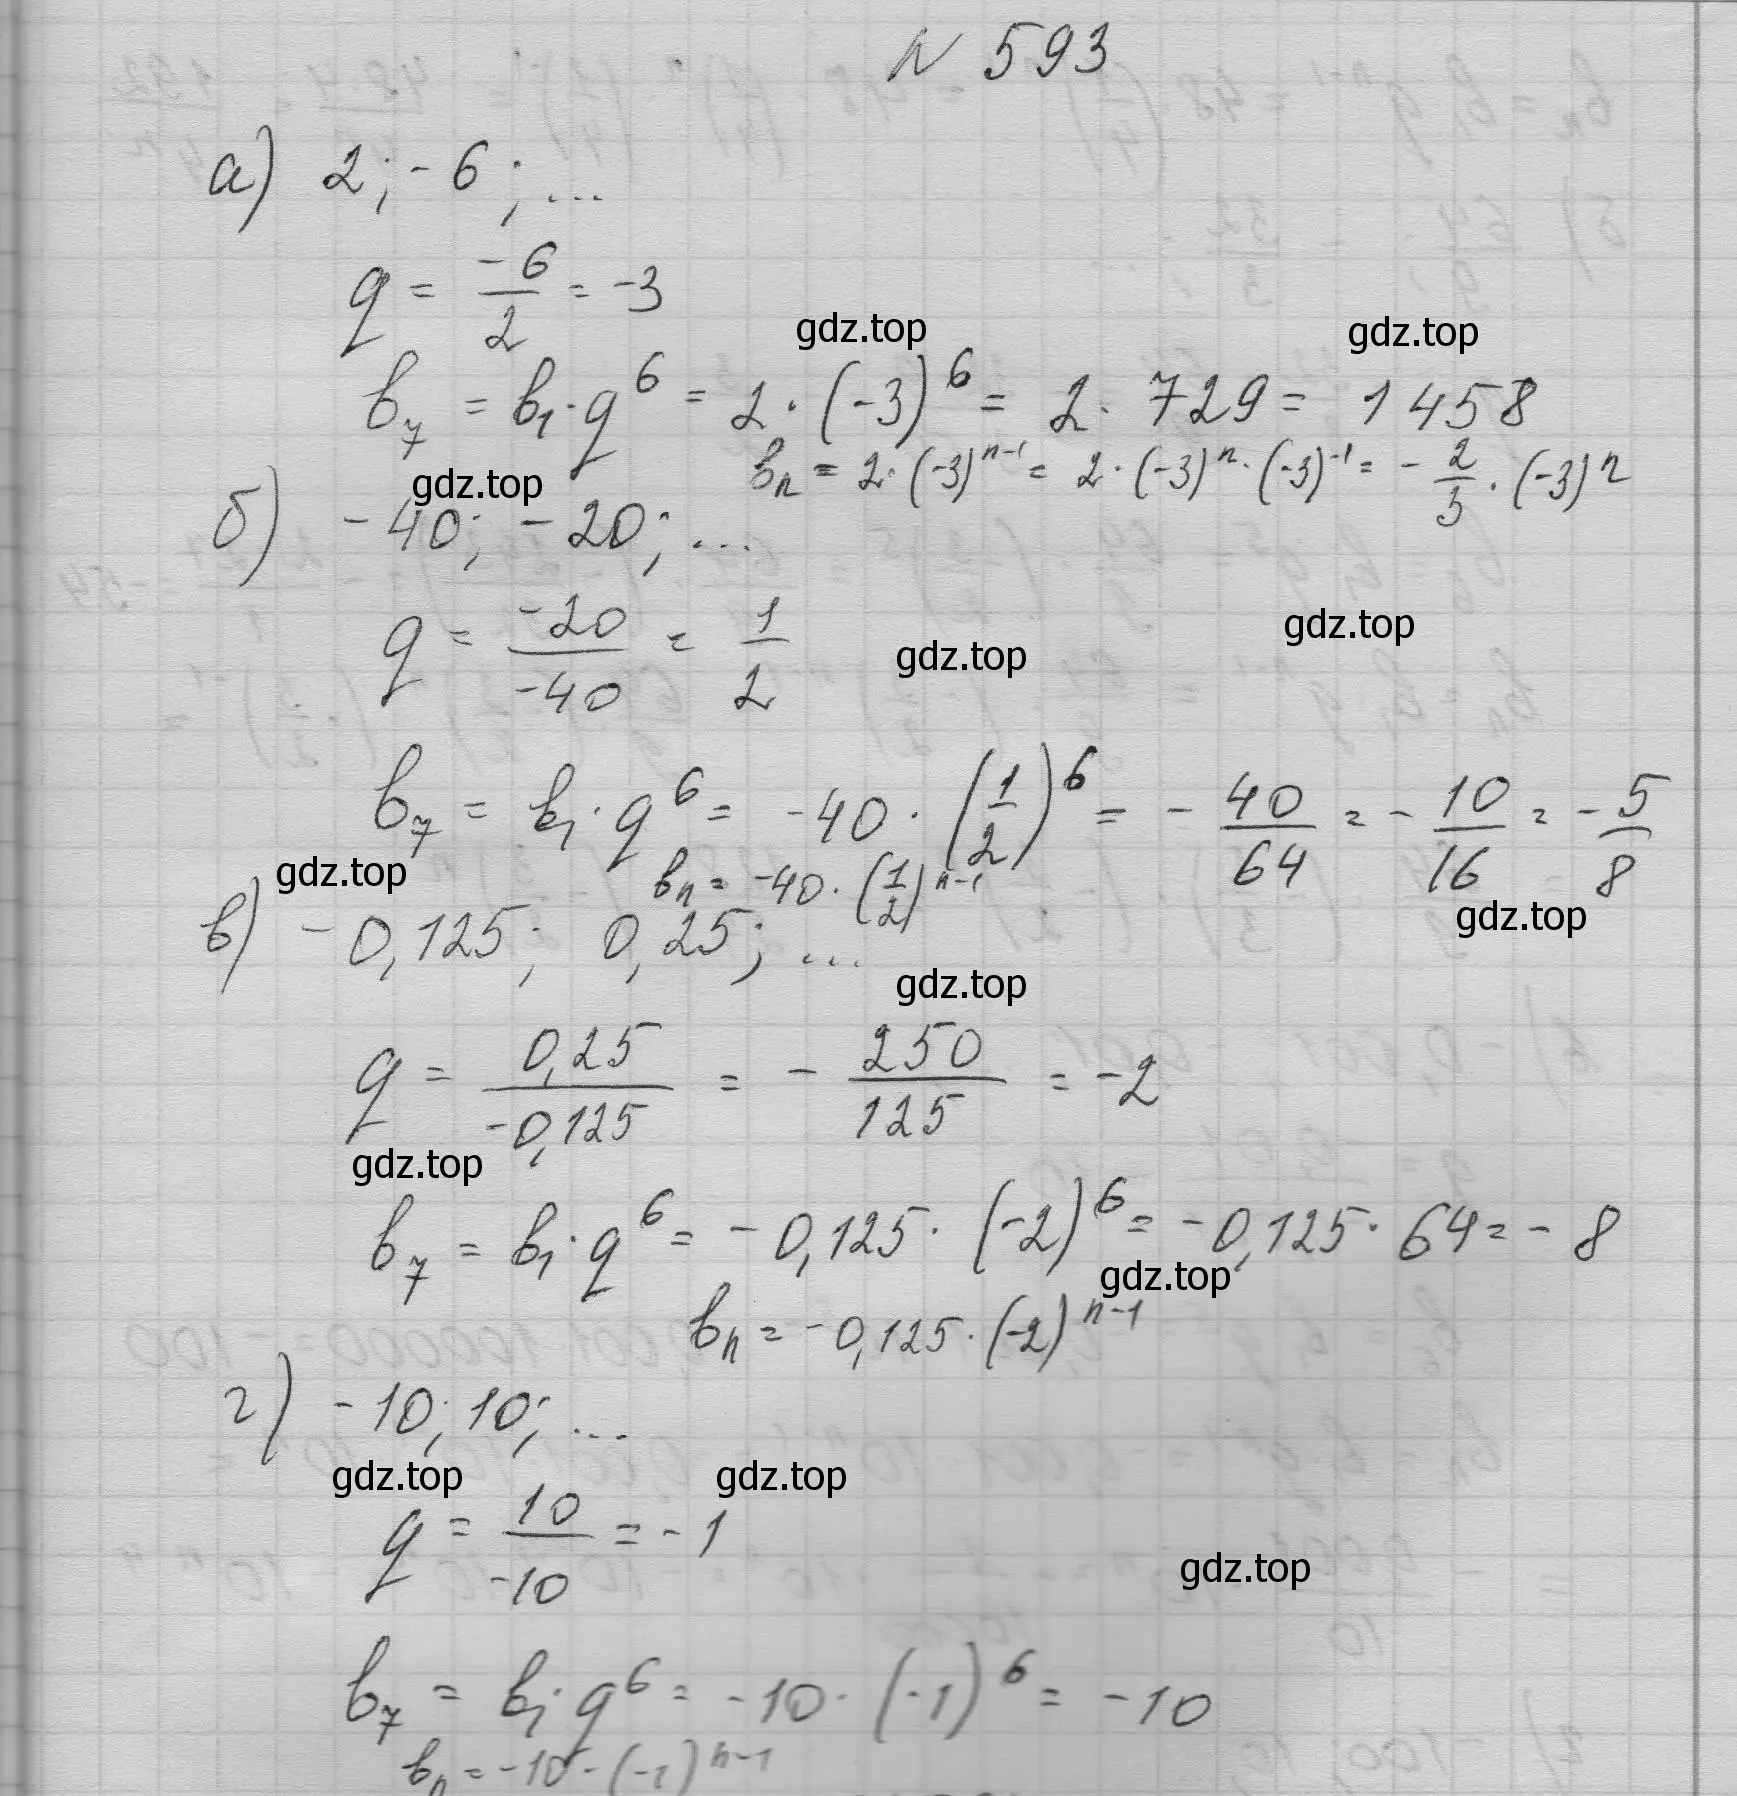 N 593
а) 2; -6; ...
q = -6/2 = -3
gdz.top gdz.top
b₇ = b₁·q⁶ = 2·(-3)⁶ = 2·729 = 1458
bₙ = 2·(-3)ⁿ⁻¹ = 2·(-3)ⁿ·(-3)⁻¹ = -2/3·(-3)ⁿ
gdz.top
б) -40; -20; ...
q = -20/-40 = 1/2
gdz.top gdz.top
b₇ = b₁·q⁶ = -40·(1/2)⁶ = -40/64 = -10/16 = -5/8
gdz.top
bₙ = -40·(1/2)ⁿ⁻¹
gdz.top
в) -0,125; 0,25; ...
gdz.top
q = 0,25/-0,125 = -250/125 = -2
gdz.top
b₇ = b₁·q⁶ = -0,125·(-2)⁶ = -0,125·64 = -8
gdz.top
bₙ = -0,125·(-2)ⁿ⁻¹
г) -10; 10; ...
gdz.top gdz.top
q = 10/-10 = -1
gdz.top
b₇ = b₁·q⁶ = -10·(-1)⁶ = -10
bₙ = -10·(-1)ⁿ⁻¹